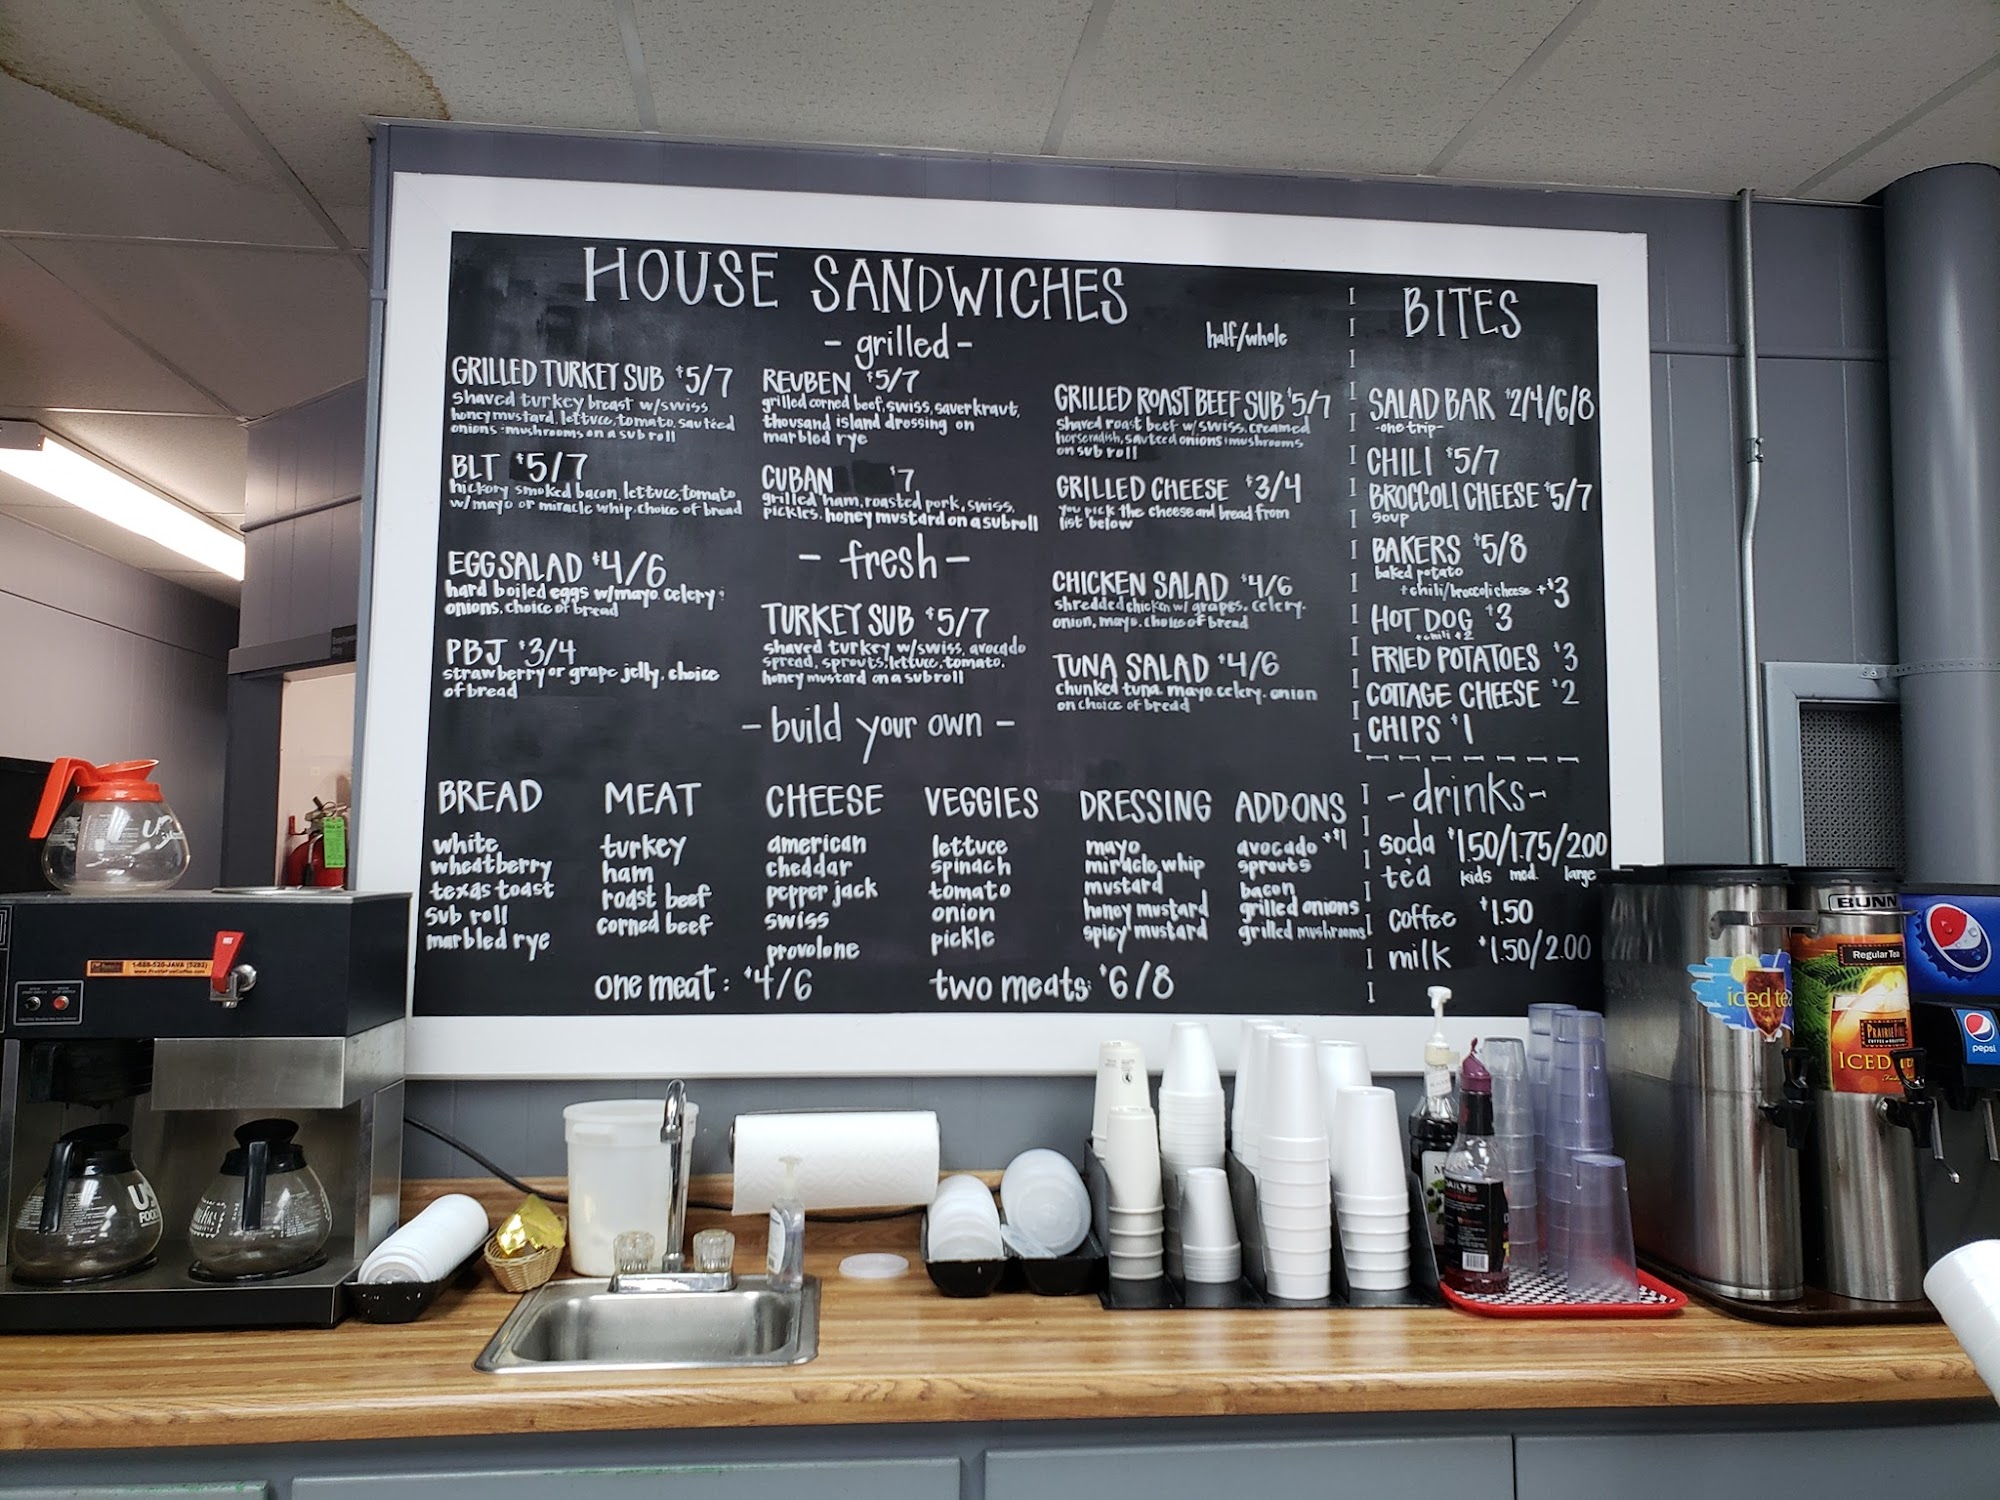 HOUSE SANDWICHES
- grilled -
half/whole
GRILLED TURKEY SUB $5/7
shaved turkey breast w/swiss
honey mustard, lettuce, tomato, sauteed
onions + mushrooms on a sub roll
BLT $5/7
hickory smoked bacon, lettuce, tomato
w/mayo or miracle whip, choice of bread
REUBEN $5/7
grilled corned beef, swiss, saverkraut,
thousand island dressing on
marbled rye
CUBAN $7
grilled ham, roasted pork, swiss,
pickles, honey mustard on a sub roll
GRILLED ROAST BEEF SUB $5/7
shaved roast beef w/swiss, creamed
horseradish, sauteed onions + mushrooms
on sub roll
GRILLED CHEESE $3/4
you pick the cheese and bread from
list below
- fresh -
EGG SALAD $4/6
hard boiled eggs w/mayo, celery +
onions, choice of bread
PBJ $3/4
strawberry or grape jelly, choice
of bread
TURKEY SUB $5/7
shaved turkey w/swiss, avocado
spread, sprouts, lettuce, tomato,
honey mustard on a sub roll
CHICKEN SALAD $4/6
shredded chicken w/ grapes, celery,
onion, mayo, choice of bread
TUNA SALAD $4/6
chunked tuna, mayo, celery, onion
on choice of bread
- build your own -
BREAD
white
wheatberry
texas toast
sub roll
marbled rye
MEAT
turkey
ham
roast beef
corned beef
CHEESE
american
cheddar
pepper jack
swiss
provolone
VEGGIES
lettuce
spinach
tomato
onion
pickle
DRESSING
mayo
miracle whip
mustard
honey mustard
spicy mustard
ADDONS
avocado +$1
sprouts
bacon
grilled onions
grilled mushrooms
one meat: $4/6
two meats: $6/8
BITES
SALAD BAR $2/4/6/8
-one trip-
CHILI $5/7
BROCCOLI CHEESE $5/7
soup
BAKERS $5/8
baked potato
+chili/broccoli cheese +$3
HOT DOG $3
+chili $2
FRIED POTATOES $3
COTTAGE CHEESE $2
CHIPS $1
-drinks-
soda $1.50/1.75/2.00
tea kids med. large
coffee $1.50
milk $1.50/2.00
1-888-520-JAVA (5282)
www.PrairieFireCoffee.com
BUNN
Regular Tea
iced tea
PRAIRIE FIRE
ICED
pepsi